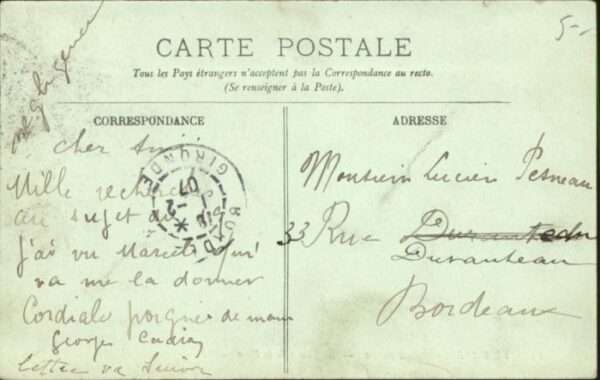 CARTE POSTALE
Tous les Pays étrangers n'acceptent pas la Correspondance au recto.
(Se renseigner à la Poste).
CORRESPONDANCE
cher
Mille
au sujet du
j'ai vu Marcel qui
va me la donner
Cordiale poignée de main
Georges
lettre va suivre
BORD
GIRONDE
07
ADRESSE
Monsieur Lucien Pesneau
33 Rue
Duranteau
Bordeaux